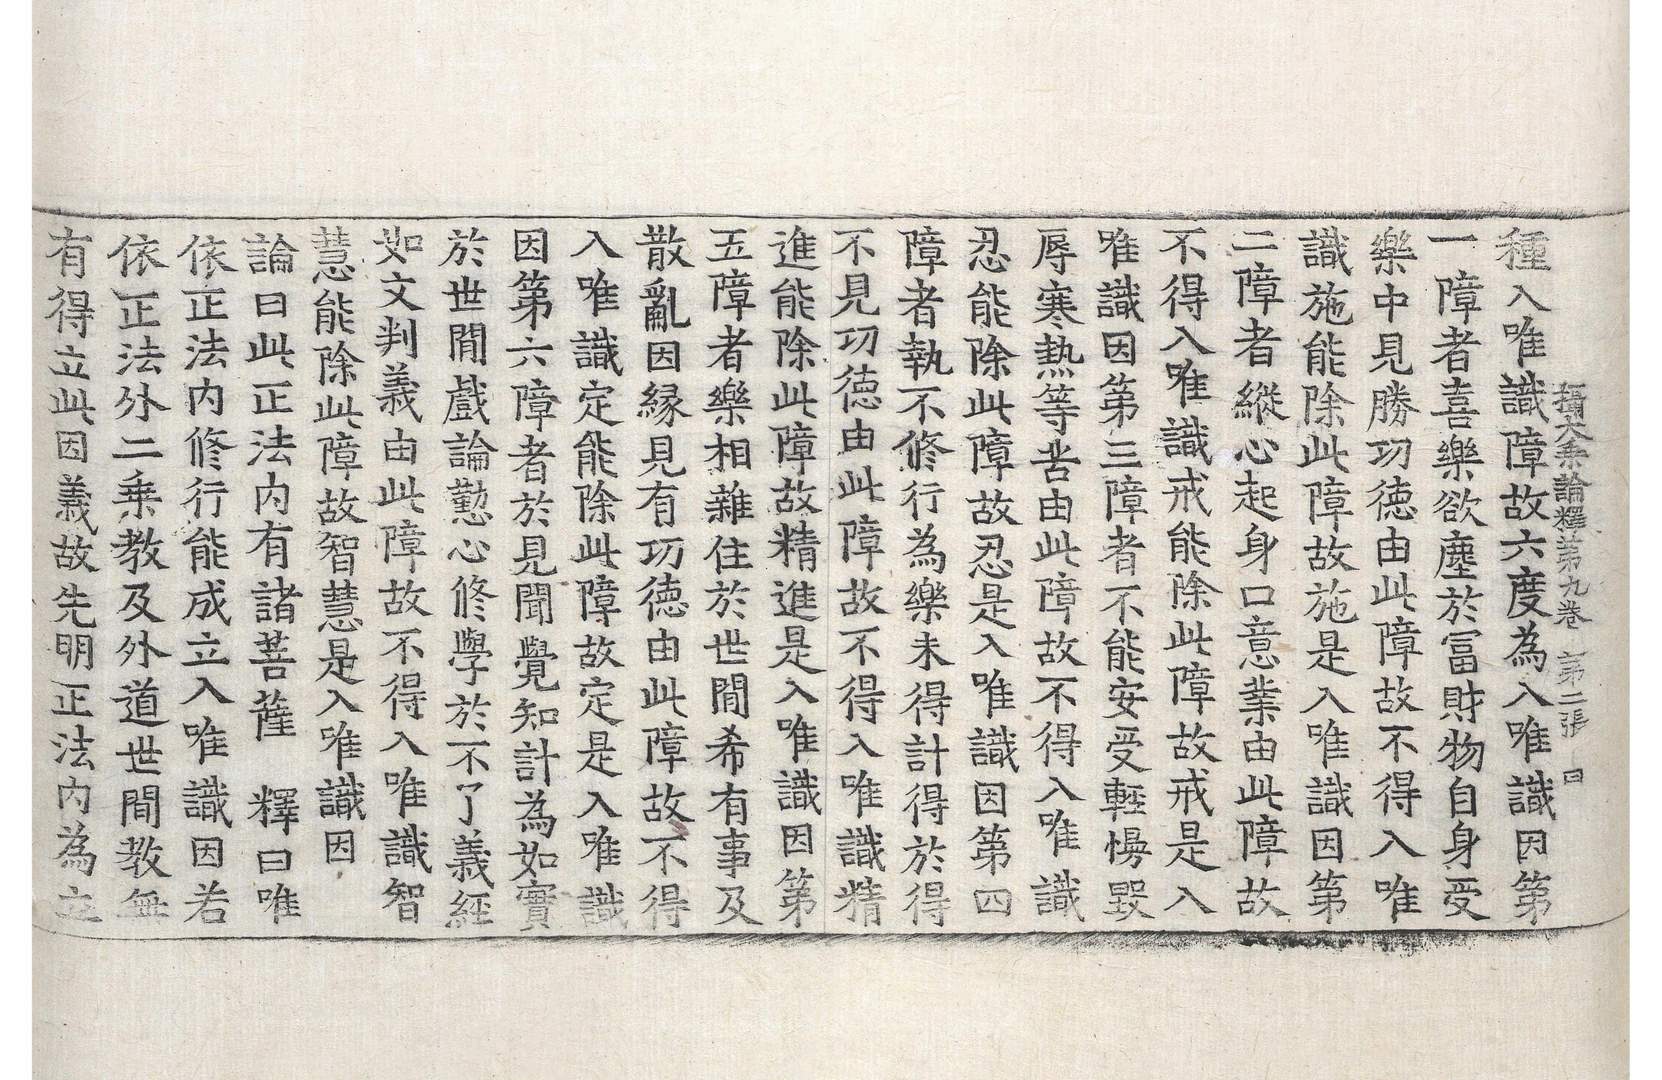 攝大乗論釋第九卷　第二張　曰
種入唯識障故六度為入唯識因第
一障者喜樂欲塵於冨財物自身受
樂中見勝功徳由此障故不得入唯
識施能除此障故施是入唯識因第
二障者縱心起身口意業由此障故
不得入唯識戒能除此障故戒是入
唯識因第三障者不能安受輕慢毀
辱寒熱等苦由此障故不得入唯識
忍能除此障故忍是入唯識因第四
障者執不修行為樂未得計得於得
不見功徳由此障故不得入唯識精
進能除此障故精進是入唯識因第
五障者樂相雜住於世間希有事及
散亂因縁見有功徳由此障故不得
入唯識定能除此障故定是入唯識
因第六障者於見聞覺知計為如實
於世間戲論懃心修學於不了義經
如文判義由此障故不得入唯識智
慧能除此障故智慧是入唯識因
論曰此正法内有諸菩薩　釋曰唯
依正法内修行能成立入唯識因若
依正法外二乗教及外道世間教無
有得立此因義故先明正法内為立